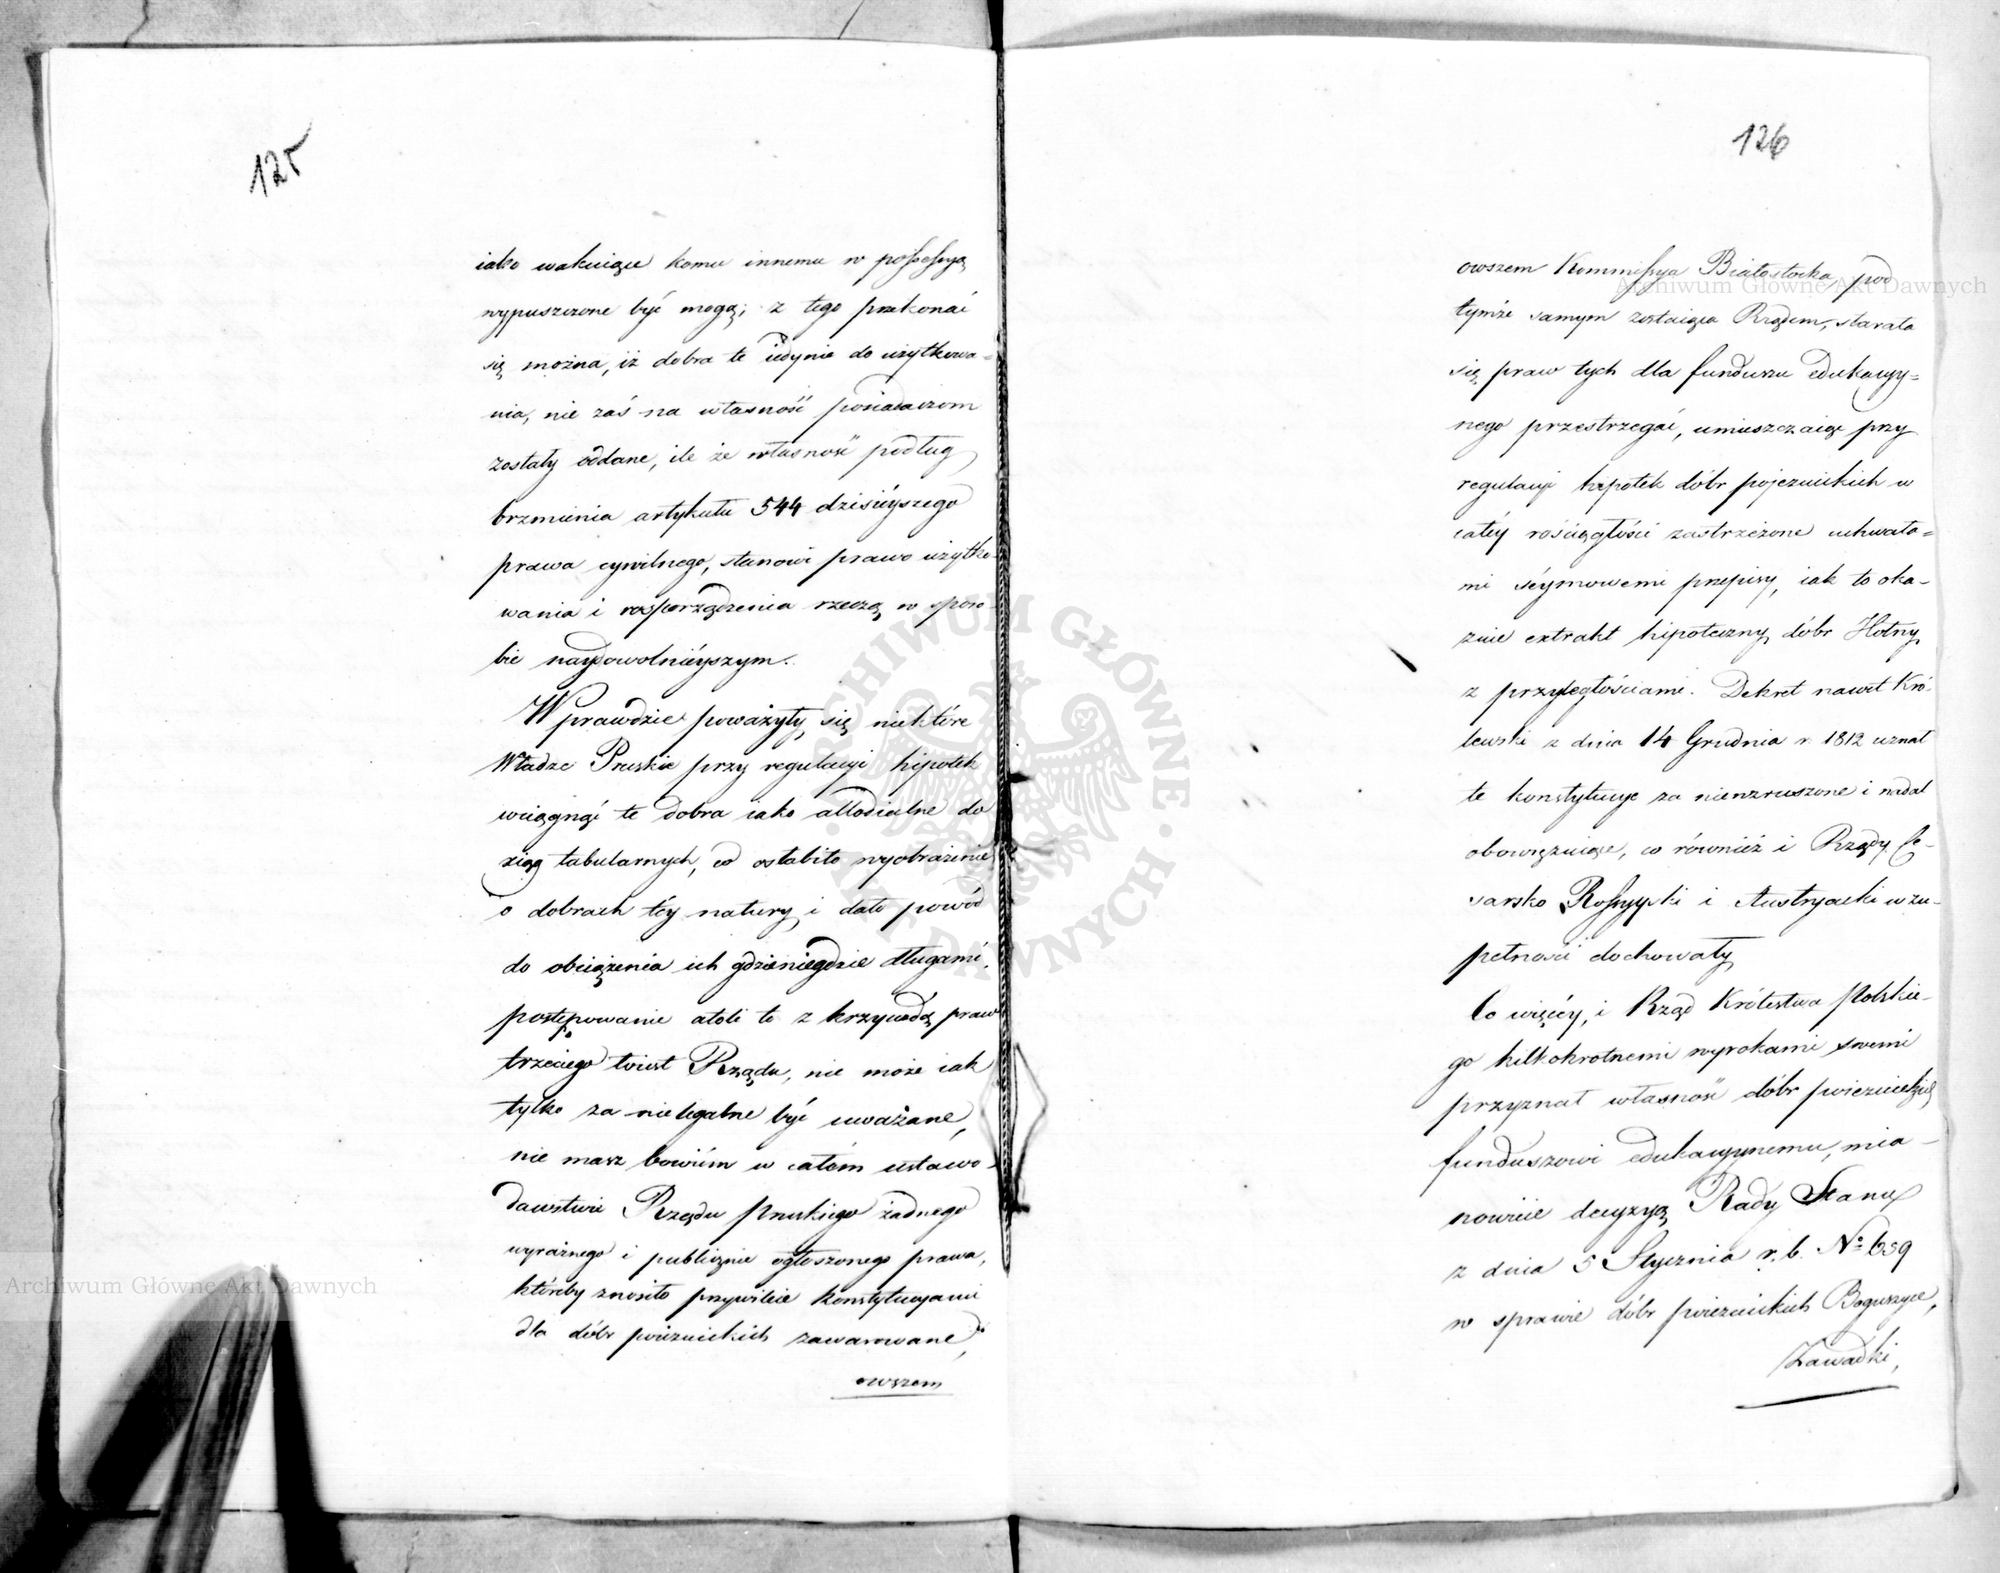 125
iako wakuiące komu innemu w possessyą
wypuszczone być mogą; z tego przekonać
się można, iż dobra te iedynie do użytkowa=
nia, nie zaś na własność posiadaczom
zostały oddane, ile że własność podług
brzmienia artykułu 544 dzisiéyszego
prawa cywilnego, stanowi prawo użytko-
wania i rosporządzenia rzeczą w sposo-
bie naydowolniéyszym.
Wprawdzie poważyły się niektóre
Władze Pruskie przy regulacyi hipotek
wciągnąć te dobra iako allodialne do
xiąg tabularnych, co osłabiło wyobrażenie
o dobrach téy natury i dało powód
do obciążenia ich gdzieniegdzie długami,
postępowanie atoli to z krzywdą praw
trzeciego toiest Rządu, nie może iak
tylko za nielegalne być uważane,
nie masz bowiém w całém ustawo-
dawstwie Rządu pruskiego żadnego
wyraźnego i publicznie ogłoszonego prawa,
któreby znosiło przywileie konstytucyami
dla dóbr poiezuickich zawarowane,
owszem
126
owszem Kommissya Białostocka pod
tymże samym zostaiąca Rządem, starała
się praw tych dla funduszu edukacyy=
nego przestrzegać, umieszczaiąc przy
regulacyi hipotek dóbr pojezuickich w
całéy rościągłości zastrzeżone uchwała=
mi séymowemi przepisy, iak to oka-
zuie extrakt hipoteczny dóbr Hołny
z przyległościami. Dekret nawet Kró-
lewski z dnia 14 Grudnia r. 1812 uznał
te konstytucye za niewzruszone i nadal
obowiązuiące, co również i Rządy Ce-
sarsko Rossyyski i Austryacki w zu-
pełności dochowały
Co więcéy, i Rząd Królestwa Polskie-
go kilkokrotnemi wyrokami swemi
przyznał własność dóbr poiezuickich
funduszowi edukacyynemu, mia-
nowicie decyzyą Rady Stanu
z dnia 5 Stycznia r. b. No 659
w sprawie dóbr poiezuickich Boguszyce,
Zawadki,
Archiwum Główne Akt Dawnych
Archiwum Główne Akt Dawnych
ARCHIWUM GŁÓWNE · AKT DAWNYCH ·